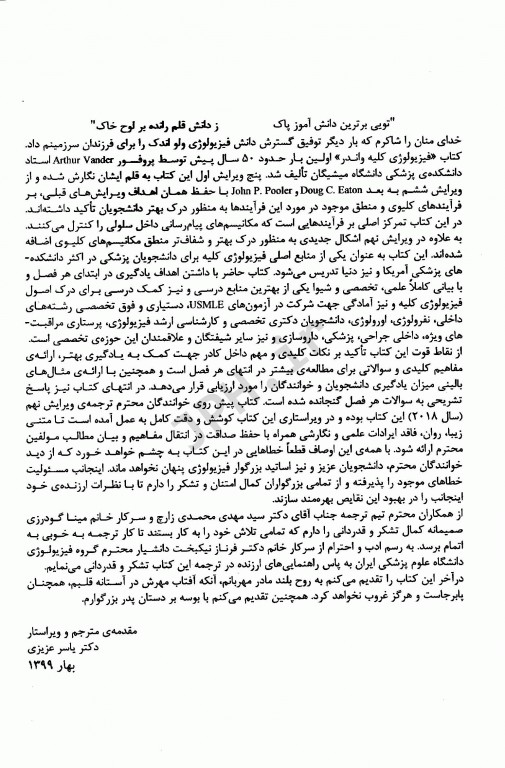 "تویی برترین دانش آموز پاک ز دانش قلم رانده بر لوح خاک"
خدای منان را شاکرم که بار دیگر توفیق گسترش دانش فیزیولوژی ولو اندک را برای فرزندان سرزمینم داد.
کتاب «فیزیولوژی کلیه واندر» اولین بار حدود ۵۰ سال پیش توسط پروفسور Arthur Vander استاد
دانشکده‌ی پزشکی دانشگاه میشیگان تألیف شد. پنج ویرایش اول این کتاب به قلم ایشان نگارش شده و از
ویرایش ششم به بعد Doug C. Eaton و John P. Pooler با حفظ همان اهداف ویرایش‌های قبلی، بر
فرآیندهای کلیوی و منطق موجود در مورد این فرآیندها به منظور درک بهتر دانشجویان تأکید داشته‌اند.
در این کتاب تمرکز اصلی بر فرآیندهایی است که مکانیسم‌های پیام‌رسانی داخل سلولی را کنترل می‌کنند.
به علاوه در ویرایش نهم اشکال جدیدی به منظور درک بهتر و شفاف‌تر منطق مکانیسم‌های کلیوی اضافه
شده‌اند. این کتاب به عنوان یکی از منابع اصلی فیزیولوژی کلیه برای دانشجویان پزشکی در اکثر دانشکده-
های پزشکی آمریکا و نیز دنیا تدریس می‌شود. کتاب حاضر با داشتن اهداف یادگیری در ابتدای هر فصل و
با بیانی کاملاً علمی، تخصصی و شیوا یکی از بهترین منابع درسی و نیز کمک درسی برای درک اصول
فیزیولوژی کلیه و نیز آمادگی جهت شرکت در آزمون‌های USMLE، دستیاری و فوق تخصصی رشته‌های
داخلی، نفرولوژی، اورولوژی، دانشجویان دکتری تخصصی و کارشناسی ارشد فیزیولوژی، پرستاری مراقبت-
های ویژه، داخلی جراحی، پزشکی، داروسازی و نیز سایر شیفتگان و علاقمندان این حوزه‌ی تخصصی است.
از نقاط قوت این کتاب تأکید بر نکات کلیدی و مهم داخل کادر جهت کمک به یادگیری بهتر، ارائه‌ی
مفاهیم کلیدی و سوالاتی برای مطالعه‌ی بیشتر در انتهای هر فصل است و همچنین با ارائه‌ی مثال‌های
بالینی میزان یادگیری دانشجویان و خوانندگان را مورد ارزیابی قرار می‌دهند. در انتهای کتاب نیز پاسخ
تشریحی به سوالات هر فصل گنجانده شده است. کتاب پیش روی خوانندگان محترم ترجمه‌ی ویرایش نهم
(سال ۲۰۱۸) این کتاب بوده و در ویراستاری این کتاب کوشش و دقت کامل به عمل آمده است تا متنی
زیبا، روان، فاقد ایرادات علمی و نگارشی همراه با حفظ صداقت در انتقال مفاهیم و بیان مطالب مولفین
محترم ارائه شود. با همه‌ی این اوصاف قطعاً خطاهایی در این کتاب به چشم خواهد خورد که از دید
خوانندگان محترم، دانشجویان عزیز و نیز اساتید بزرگوار فیزیولوژی پنهان نخواهد ماند. اینجانب مسئولیت
خطاهای موجود را پذیرفته و از تمامی بزرگواران کمال امتنان و تشکر را دارم تا با نظرات ارزنده‌ی خود
اینجانب را در بهبود این نقایص بهره‌مند سازند.
از همکاران محترم تیم ترجمه جناب آقای دکتر سید مهدی محمدی زارچ و سرکار خانم مینا گودرزی
صمیمانه کمال تشکر و قدردانی را دارم که تمامی تلاش خود را به کار بستند تا کار ترجمه به خوبی به
اتمام برسد. به رسم ادب و احترام از سرکار خانم دکتر فرناز نیکبخت دانشیار محترم گروه فیزیولوژی
دانشگاه علوم پزشکی ایران به پاس راهنمایی‌های ارزنده در ترجمه این کتاب تشکر و قدردانی می‌نمایم.
درآخر این کتاب را تقدیم می‌کنم به روح بلند مادر مهربانم، آنکه آفتاب مهرش در آستانه قلبم، همچنان
پابرجاست و هرگز غروب نخواهد کرد. همچنین تقدیم می‌کنم با بوسه بر دستان پدر بزرگوارم.
مقدمه‌ی مترجم و ویراستار
دکتر یاسر عزیزی
بهار ۱۳۹۹